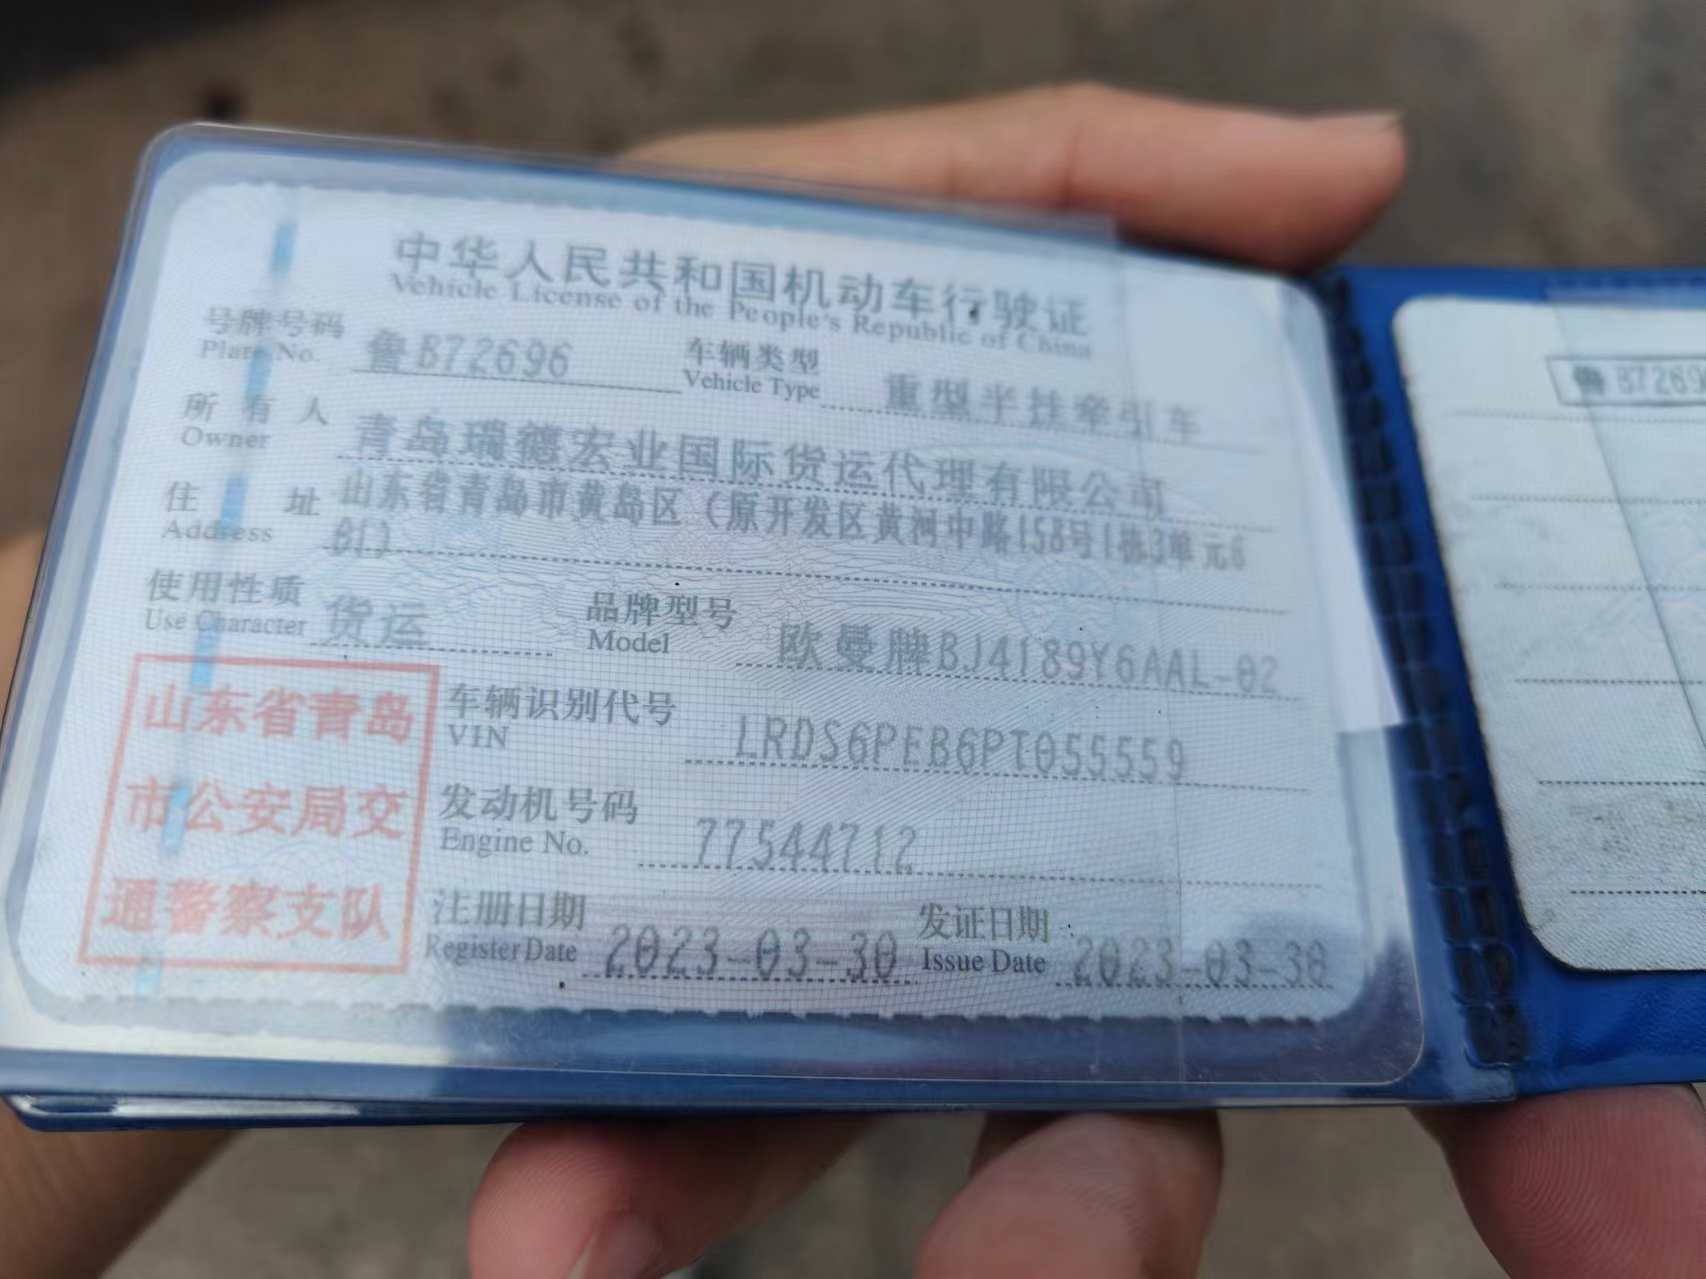 中华人民共和国机动车行驶证
Vehicle License of the People's Republic of China
号牌号码 鲁B72696 车辆类型 重型半挂牵引车
Plate No. Vehicle Type
所有人 青岛瑞德宏业国际货运代理有限公司
Owner
住址 山东省青岛市黄岛区（原开发区黄河中路158号1栋3单元6
Address 01）
使用性质 货运 品牌型号 欧曼牌BJ4189Y6AAL-02
Use Character Model
山东省青岛
市公安局交
通警察支队
车辆识别代号 LRDS6PEB6PT055559
VIN
发动机号码 77544712
Engine No.
注册日期 2023-03-30 发证日期 2023-03-30
Register Date Issue Date
鲁B7269